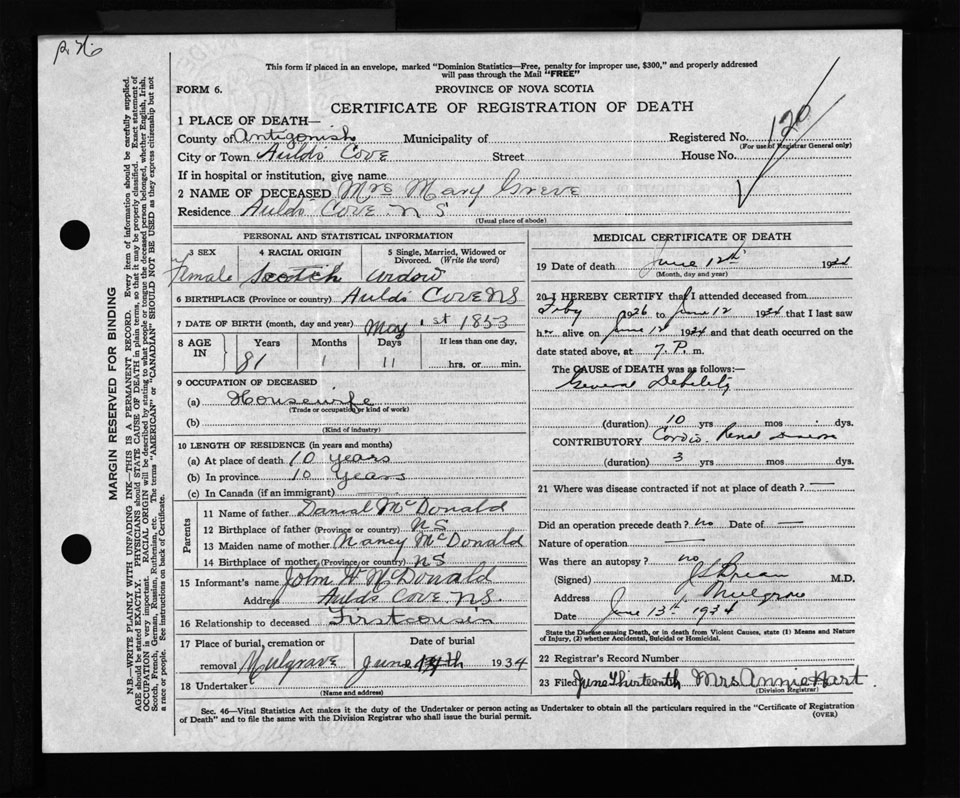 This form if placed in an envelope, marked "Dominion Statistics—Free, penalty for improper use, $300," and properly addressed
will pass through the Mail "FREE"
FORM 6. PROVINCE OF NOVA SCOTIA
CERTIFICATE OF REGISTRATION OF DEATH
1 PLACE OF DEATH—
County of Antigonish Municipality of Registered No. 120
(For use of Registrar General only)
City or Town Aulds Cove Street House No.
If in hospital or institution, give name
2 NAME OF DECEASED Mrs Mary Greve
Residence Aulds Cove NS
(Usual place of abode)
PERSONAL AND STATISTICAL INFORMATION
3 SEX 4 RACIAL ORIGIN 5 Single, Married, Widowed or Divorced. (Write the word)
Female Scotch Widow
6 BIRTHPLACE (Province or country) Aulds Cove NS
7 DATE OF BIRTH (month, day and year) May 1st 1853
8 AGE IN Years Months Days If less than one day,
81 1 11 hrs. or min.
9 OCCUPATION OF DECEASED
(a) Housewife
(Trade or occupation or kind of work)
(b)
(Kind of industry)
10 LENGTH OF RESIDENCE (in years and months)
(a) At place of death 10 years
(b) In province 10 years
(c) In Canada (if an immigrant)
Parents
11 Name of father Daniel McDonald
12 Birthplace of father (Province or country) NS
13 Maiden name of mother Nancy McDonald
14 Birthplace of mother (Province or country) NS
15 Informant's name John W McDonald
Address Aulds Cove NS.
16 Relationship to deceased First cousin
17 Place of burial, cremation or removal Mulgrave Date of burial June 14th 1934
18 Undertaker
(Name and address)
MEDICAL CERTIFICATE OF DEATH
19 Date of death June 12th 1934
(Month, day and year)
20 I HEREBY CERTIFY that I attended deceased from
Feby 1926 to June 12 1934 that I last saw
h alive on June 12 1934 and that death occurred on
date stated above, at 7. P. m.
The CAUSE of DEATH was as follows:—
General Debility
(duration) 10 yrs mos dys.
CONTRIBUTORY Cardio Renal Disease
(duration) 3 yrs mos. dys.
21 Where was disease contracted if not at place of death? —
Did an operation precede death? no Date of —
Nature of operation —
Was there an autopsy? no
(Signed) M.D.
Address Mulgrave
Date June 13th 1934
State the Disease causing Death, or in death from Violent Causes, state (1) Means and Nature
of Injury, (2) whether Accidental, Suicidal or Homicidal.
22 Registrar's Record Number
23 Filed June Thirteenth Mrs. Annie Hart.
(Division Registrar)
Sec. 46—Vital Statistics Act makes it the duty of the Undertaker or person acting as Undertaker to obtain all the particulars required in the "Certificate of Registration
of Death" and to file the same with the Division Registrar who shall issue the burial permit. (OVER)
MARGIN RESERVED FOR BINDING
N.B.—WRITE PLAINLY WITH UNFADING INK—THIS IS A PERMANENT RECORD. Every item of information should be carefully supplied.
AGE should be stated EXACTLY. PHYSICIANS should STATE CAUSE OF DEATH in plain terms, so that it may be properly classified. Exact statement of
OCCUPATION is very important. RACIAL ORIGIN will be described by stating to what people or tongue the deceased person belonged, whether English, Irish,
Scotch, French, German, Russian, Ruthenian, etc. The terms "AMERICAN" or "CANADIAN" SHOULD NOT BE USED as they express citizenship but not
a race or people. See instructions on back of Certificate.